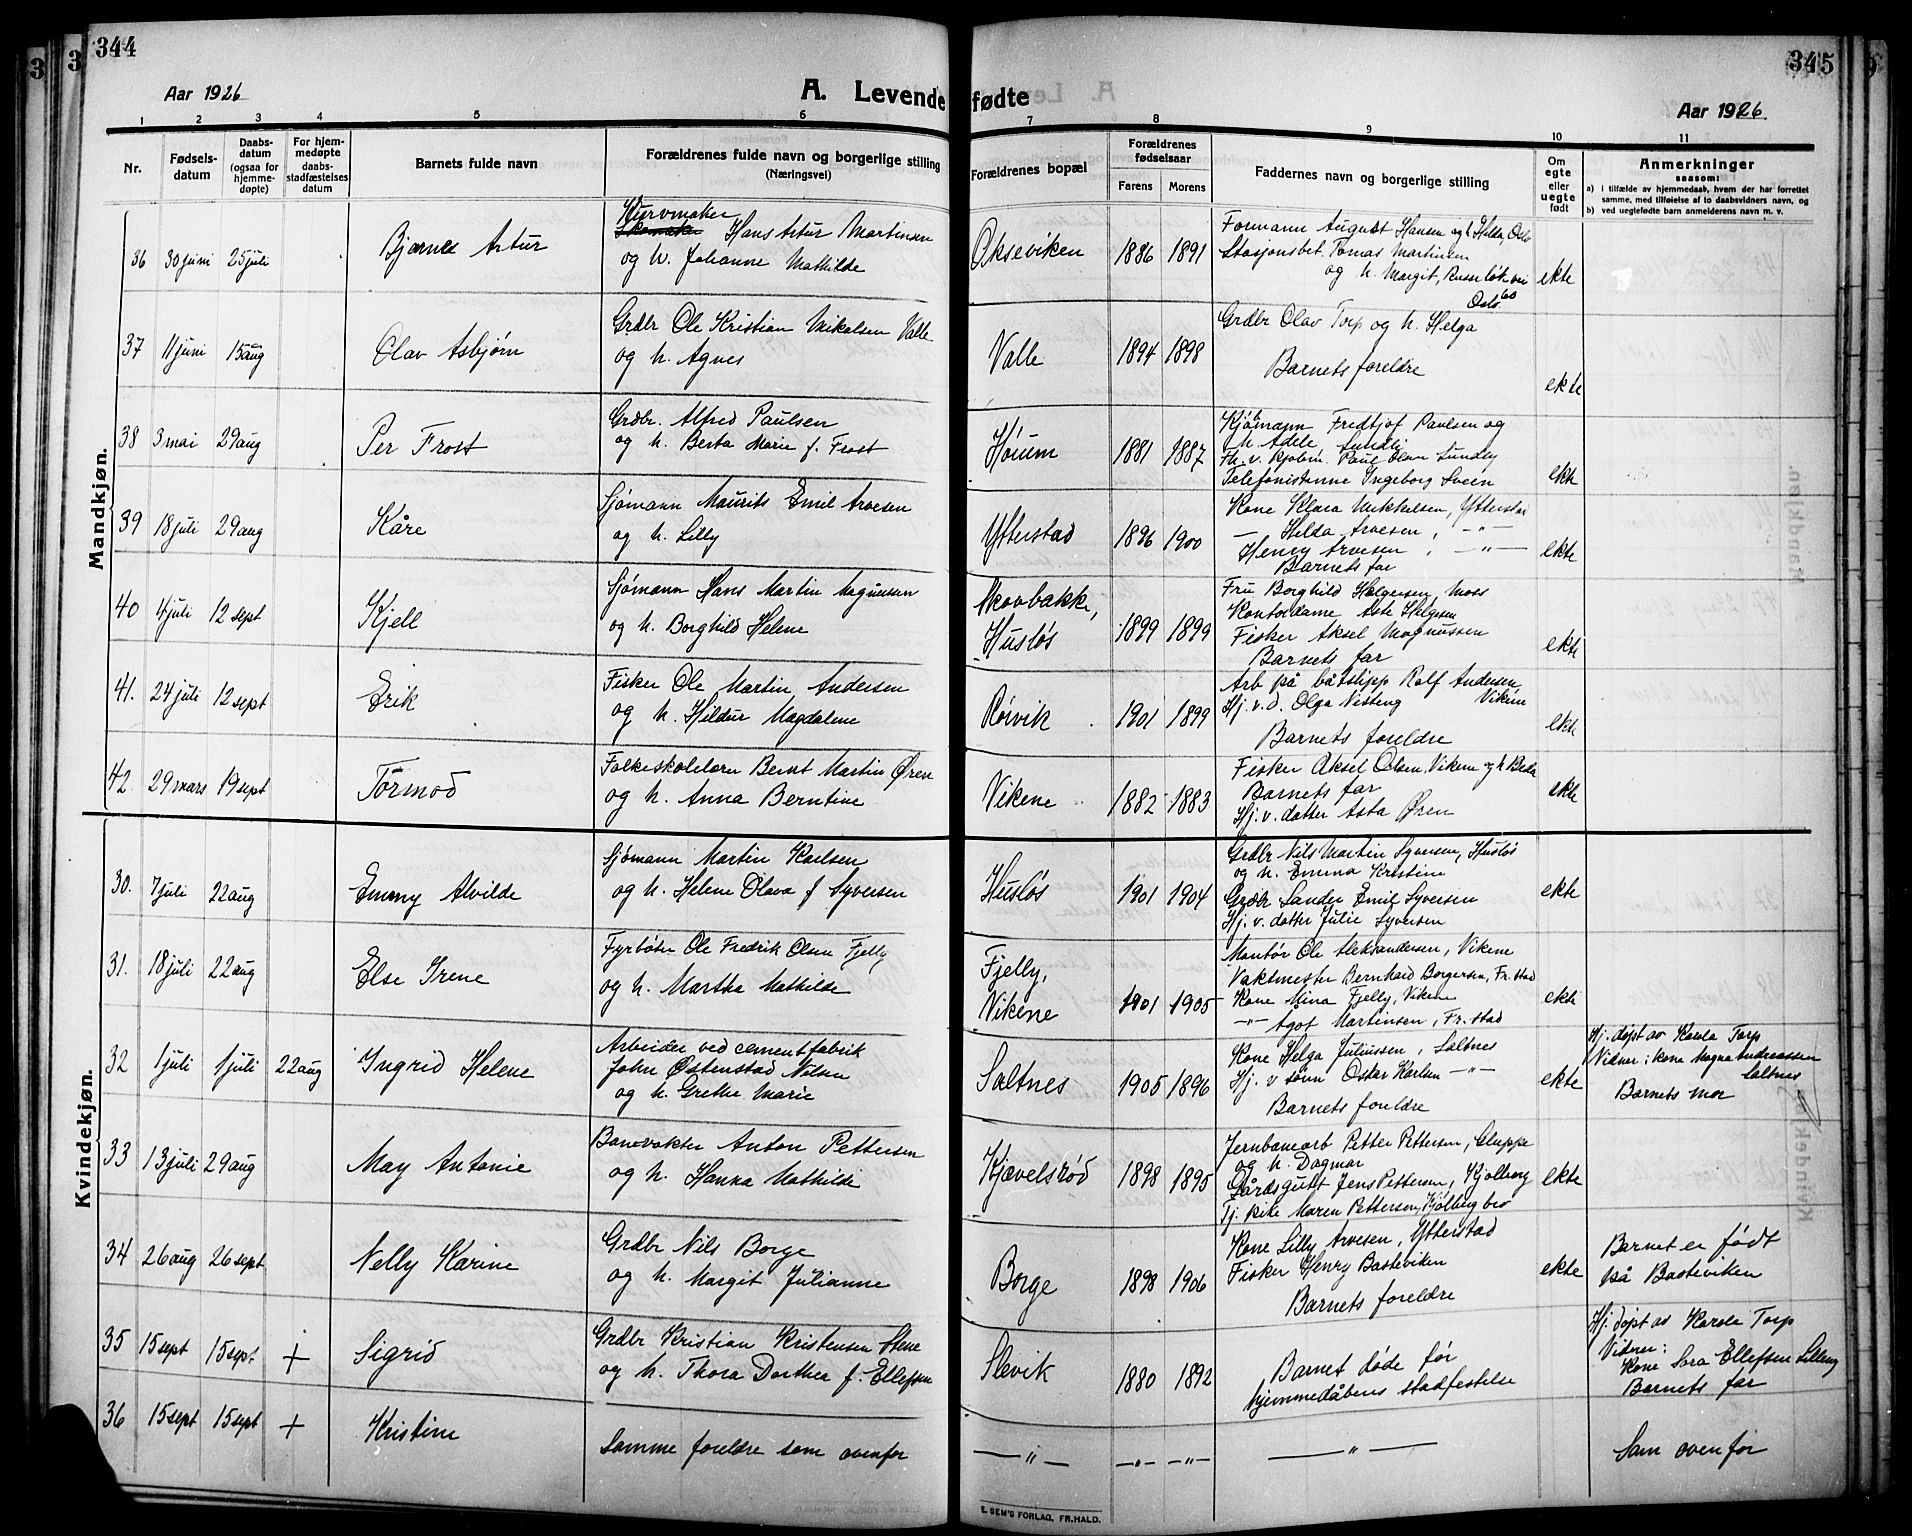 344
345
Aar 1926
A. Levende fødte
Aar 1926.
1 2 3 4 5 6 7 8 9 10 11
Nr.
Fødsels-
datum
Daabs-
datum
(ogsaa for
hjemme-
døpte)
For hjem-
medøpte
daabs-
stadfæstelses
datum
Barnets fulde navn
Forældrenes fulde navn og borgerlige stilling
(Næringsvei)
Forældrenes bopæl
Forældrenes
fødselsaar
Farens Morens
Faddernes navn og borgerlige stilling
Om
egte
eller
uegte
født
Anmerkninger
saasom:
a) i tilfælde av hjemmedaab, hvem der har forrettet
samme, med tilføielse af to daabsvidners navn, og
b) ved uegtefødte barn anmelderens navn m. v.
Mandkjøn.
36 30 juni 25 juli
Bjarne Artur
Kurvmaker
Hans Artur Martinsen
og h. Johanne Mathilde
Okseviken 1886 1891
Formann August Hansen og h. Hilda, Oslo
Stasjonsbet. Tomas Martinsen
og h. Margit,
Oslo
ekte
37 11 juni 15 aug
Olav Asbjørn
Grdbr Ole Kristian Mikalsen Valle
og h. Agnes
Valle 1894 1898
Grdbr Olav Torp og h. Helga
Barnets foreldre
ekte
38 3 mai 29 aug
Per Frost
Grdbr. Alfred Paulsen
og h. Berta Marie f. Frost
Hóum 1881 1887
Kjøbmann Fredtjof Paulsen og
h. Adele Sundli
Paul Olav Sundby
Telefonistinne Ingeborg Svein
ekte
39 18 juli 29 aug
Kåre
Sjømann Maurits Emil Arvesen
og h. Lilly
Ytterstad 1896 1900
Kone Klara Mikkelsen, Ytterstad
— Hilda Arvesen, —"—
Henry Arvesen, —"—
Barnets far
ekte
40 4 juli 12 sept
Kjell
Sjømann Hans Martin Magnussen
og h. Borghild Helene
Skovbakke,
Husløs 1899 1899
Fru Borghild Helgersen, Moss
Kontordame Aste Helgesen
Fisker Aksel Magnussen
Barnets far
ekte
41. 24 juli 12 sept
Erik
Fisker Ole Martin Andersen
og h. Hildur Magdalene
Rørvik 1901 1899
Arb på båtslipp Rolf Andersen
Hj. v. d. Olga Nesteng Viken
Barnets foreldre
ekte
42. 29 mars 19 sept
Tormod
Folkeskolelærer Bernt Martin Øren
og h. Anna Berntine
Vikene 1882 1883
Fisker Aksel Olsen, Vikene og h. Beda
Barnets far
Hj. v. datter Asta Øren
ekte
Kvindekjøn.
30. 7 juli 22 aug
Emmy Alvilde
Sjømann Martin Karlsen
og h. Helene Olava f Syversen
Husløs 1901 1904
Grdbr Nils Martin Syversen, Husløs
og h. Emma Kristine
Grdbr Sander Emil Syversen
Hj. v. datter Julie Syversen
ekte
31. 18 juli 22 aug
Else Irene
Fyrbøter Ole Fredrik Olsen Fjelly
og h. Martha Mathilde
Fjelly,
Vikene 1901 1905
Montør Ole Aleksandersen, Vikene
Vaktmester Bernhard Borgersen, Fr.stad
Kone Mina Fjelly, Vikene
—"— Agot Martinsen, Fr.stad
ekte
32 1 juli 1 juli 22 aug
Ingrid Helene
Arbeider ved cementfabrik
John Østenstad Nilsen
og h. Grethe Marie
Saltnes 1905 1896
Kone Helga Juliussen, Saltnes
Hj. v sønn Oskar Karlsen —"—
Barnets foreldre
ekte
Hj. døpt av Karola Torp
Vidner: kone Magna Andreassen
Saltnes
Barnets mor
33 13 juli 29 aug
May Antonie
Banevokter Anton Pettersen
og h. Hanna Mathilde
Kjævelsrød 1898 1895
Jernbanearb Petter Pettersen, Greppe
og h. Dagmar
Gårdsgutt Jens Pettersen, Kjølberg
Tj. pike Maren Pettersen, Kjølberg bro
ekte
34 26 aug 26 sept
Nelly Karine
Grdbr Nils Borge
og h. Margit Julianne
Borge 1898 1906
Kone Lilly Arvesen, Ytterstad
Fisker Henry Basteviken
Barnets foreldre
ekte
Barnet er født
på Basteviken
35 15 sept 15 sept +
Sigrid
Grdbr Kristian Kristensen Stene
og h. Thora Dorthea f. Ellefsen
Slevik 1880 1892
Barnet døde før
hjemmedåbens stadfestelse
Hj. døpt av Karola Torp
Vidner:
Kone Sora Ellefsen Lilleng
Barnets far
36 15 sept 15 sept +
Kristine
Samme foreldre som ovenfor
—"— —"— —"—
—"—
Som ovenfor
E. SEM'S FORLAG, FR.HALD.